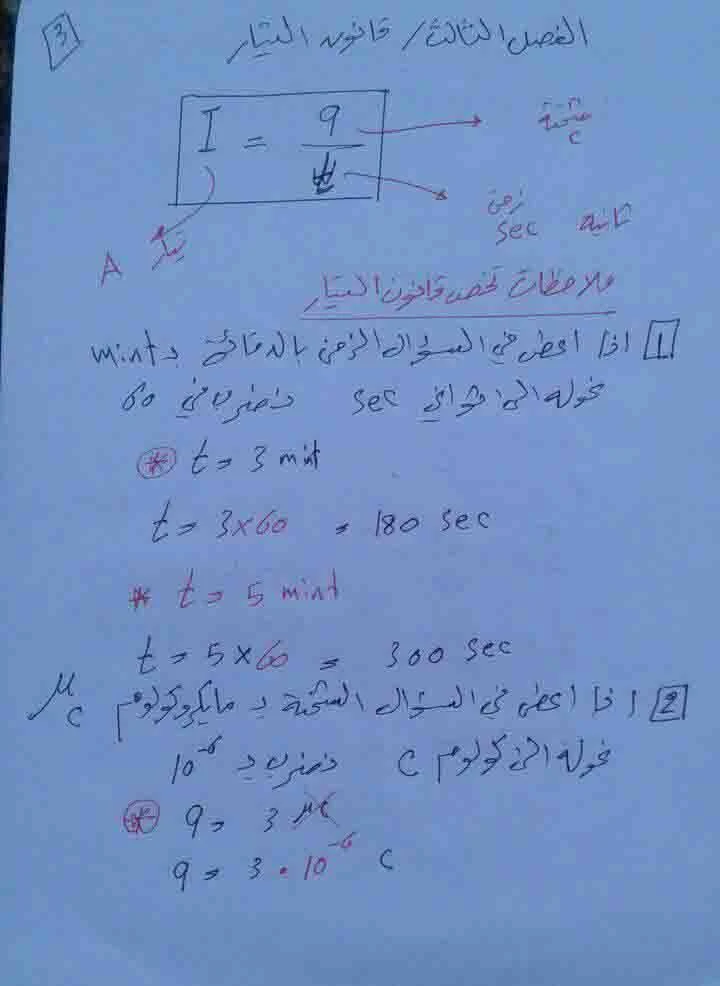 3
الفصل الثالث / قانون التيار
I = q / t
شحنة
C
زمن
ثانية sec
تيار A
ملاحظات تخص قانون التيار
1 اذا اعطى في السؤال الزمن بالدقائق بـ mint
نحوله الى ثواني sec نضرب في 60
* t = 3 mint
t = 3×60 = 180 sec
* t = 5 mint
t = 5×60 = 300 sec
2 اذا اعطى في السؤال الشحنة بـ مايكروكولوم μc
نحوله الى كولوم C نضرب بـ 10⁻⁶
* q = 3 μc
q = 3 • 10⁻⁶ C